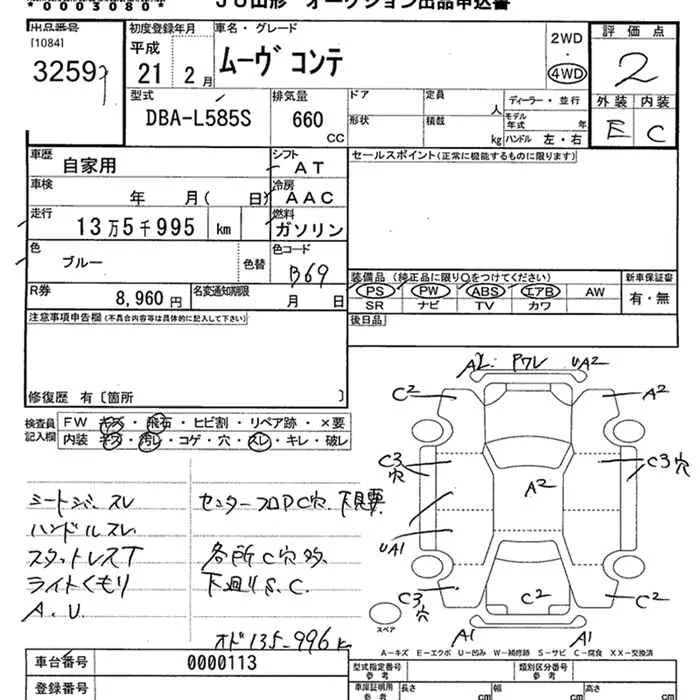 *0005080*
JU山形 オークション出品申込書
出品番号
[1084]
初度登録年月
平成
21 2月
車名・グレード
ムーヴ コンテ
2WD
・
4WD
評価点
2
外装 内装
E C
型式
DBA-L585S
排気量
660
CC
ドア
定員
人
形状
積載
kg
ディーラー・並行
モデル年式 年
ハンドル 左・右
車歴
自家用
シフト
AT
セールスポイント(正常に機能するものに限ります)
車検
年 月( 日)
冷房
AAC
走行
13万5千995 km
燃料
ガソリン
色
ブルー
色替
色コード
B69
R券
8,960 円
名変通知期限
月 日
装備品 (純正品に限り○をつけてください)
PS PW ABS エアB AW
SR ナビ TV カワ
新車保証書
有・無
後日品
注意事項申告欄(不具合内容等は具体的に記入して下さい)
修復歴 有〔箇所 〕
検査員記入欄
FW キズ・飛石・ヒビ割・リペア跡・×要
内装 キズ・汚レ・コゲ・穴・スレ・キレ・破レ
シートジミ スレ
ハンドルスレ
スタットレスT
ライトくもり
A.U.
センターフロアC穴 下見要
各所C穴多
下廻りS.C.
オド135-996k
UA2
C2
A2
C3
穴
C3
穴
A2
UA1
C3
穴
C2
C2
A1
A1
スペア
A-キズ E-エクボ U-凹み W-補修跡 S-サビ C-腐食 XX-交換済
車台番号
0000113
登録番号
型式指定番号
類別区分番号
車庫証明用参考
長さ
cm
幅
cm
高さ
cm